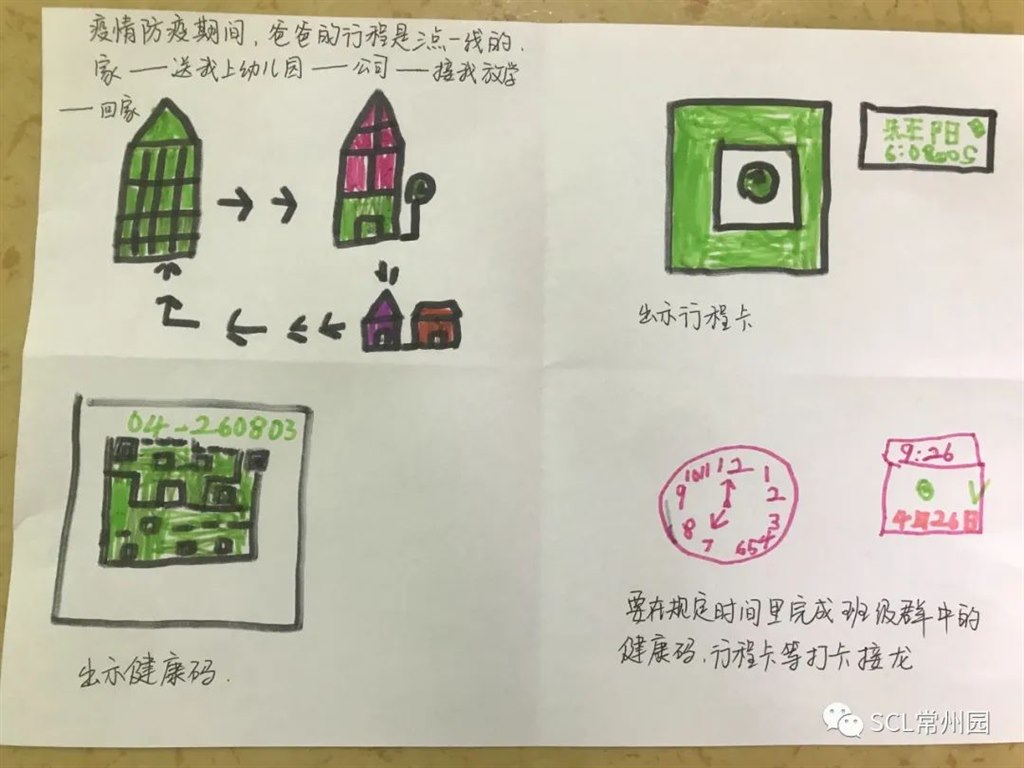 疫情防疫期间，爸爸的行程是三点一线的.
家——送我上幼儿园——公司——接我放学
——回家
出示行程卡
04-260803
出示健康码.
12
1
2
3
4
5
6
7
8
9
10
11
9:26
4月26日
要在规定时间里完成班级群中的
健康码.行程卡等打卡接龙
SCL常州园